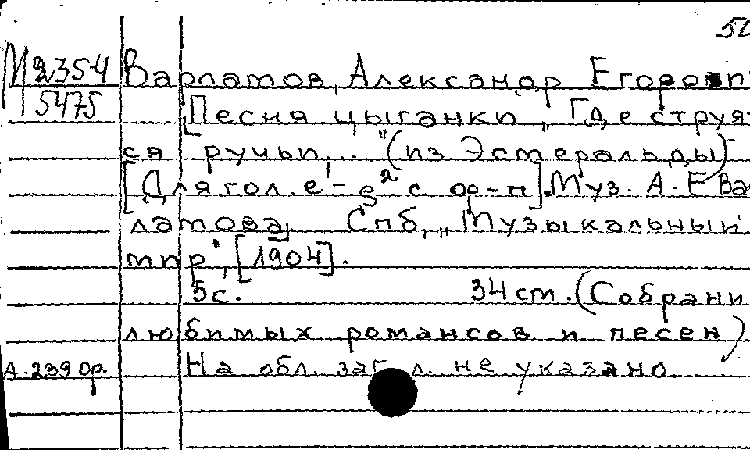 50
М 2354 Варламов, Александр Егорович
5475 [Песня цыганки „Где струят
ся ручьи..." (из Эстеральды)
[Для гол. e¹-g² с ф-п]. Муз. А. Е Ва
ламова] Спб, „Музыкальный
мир", [1904].
5с. 34 cm. (Собрани
любимых романсов и песен)
А-239 ор. На обл. заг л. не указано.